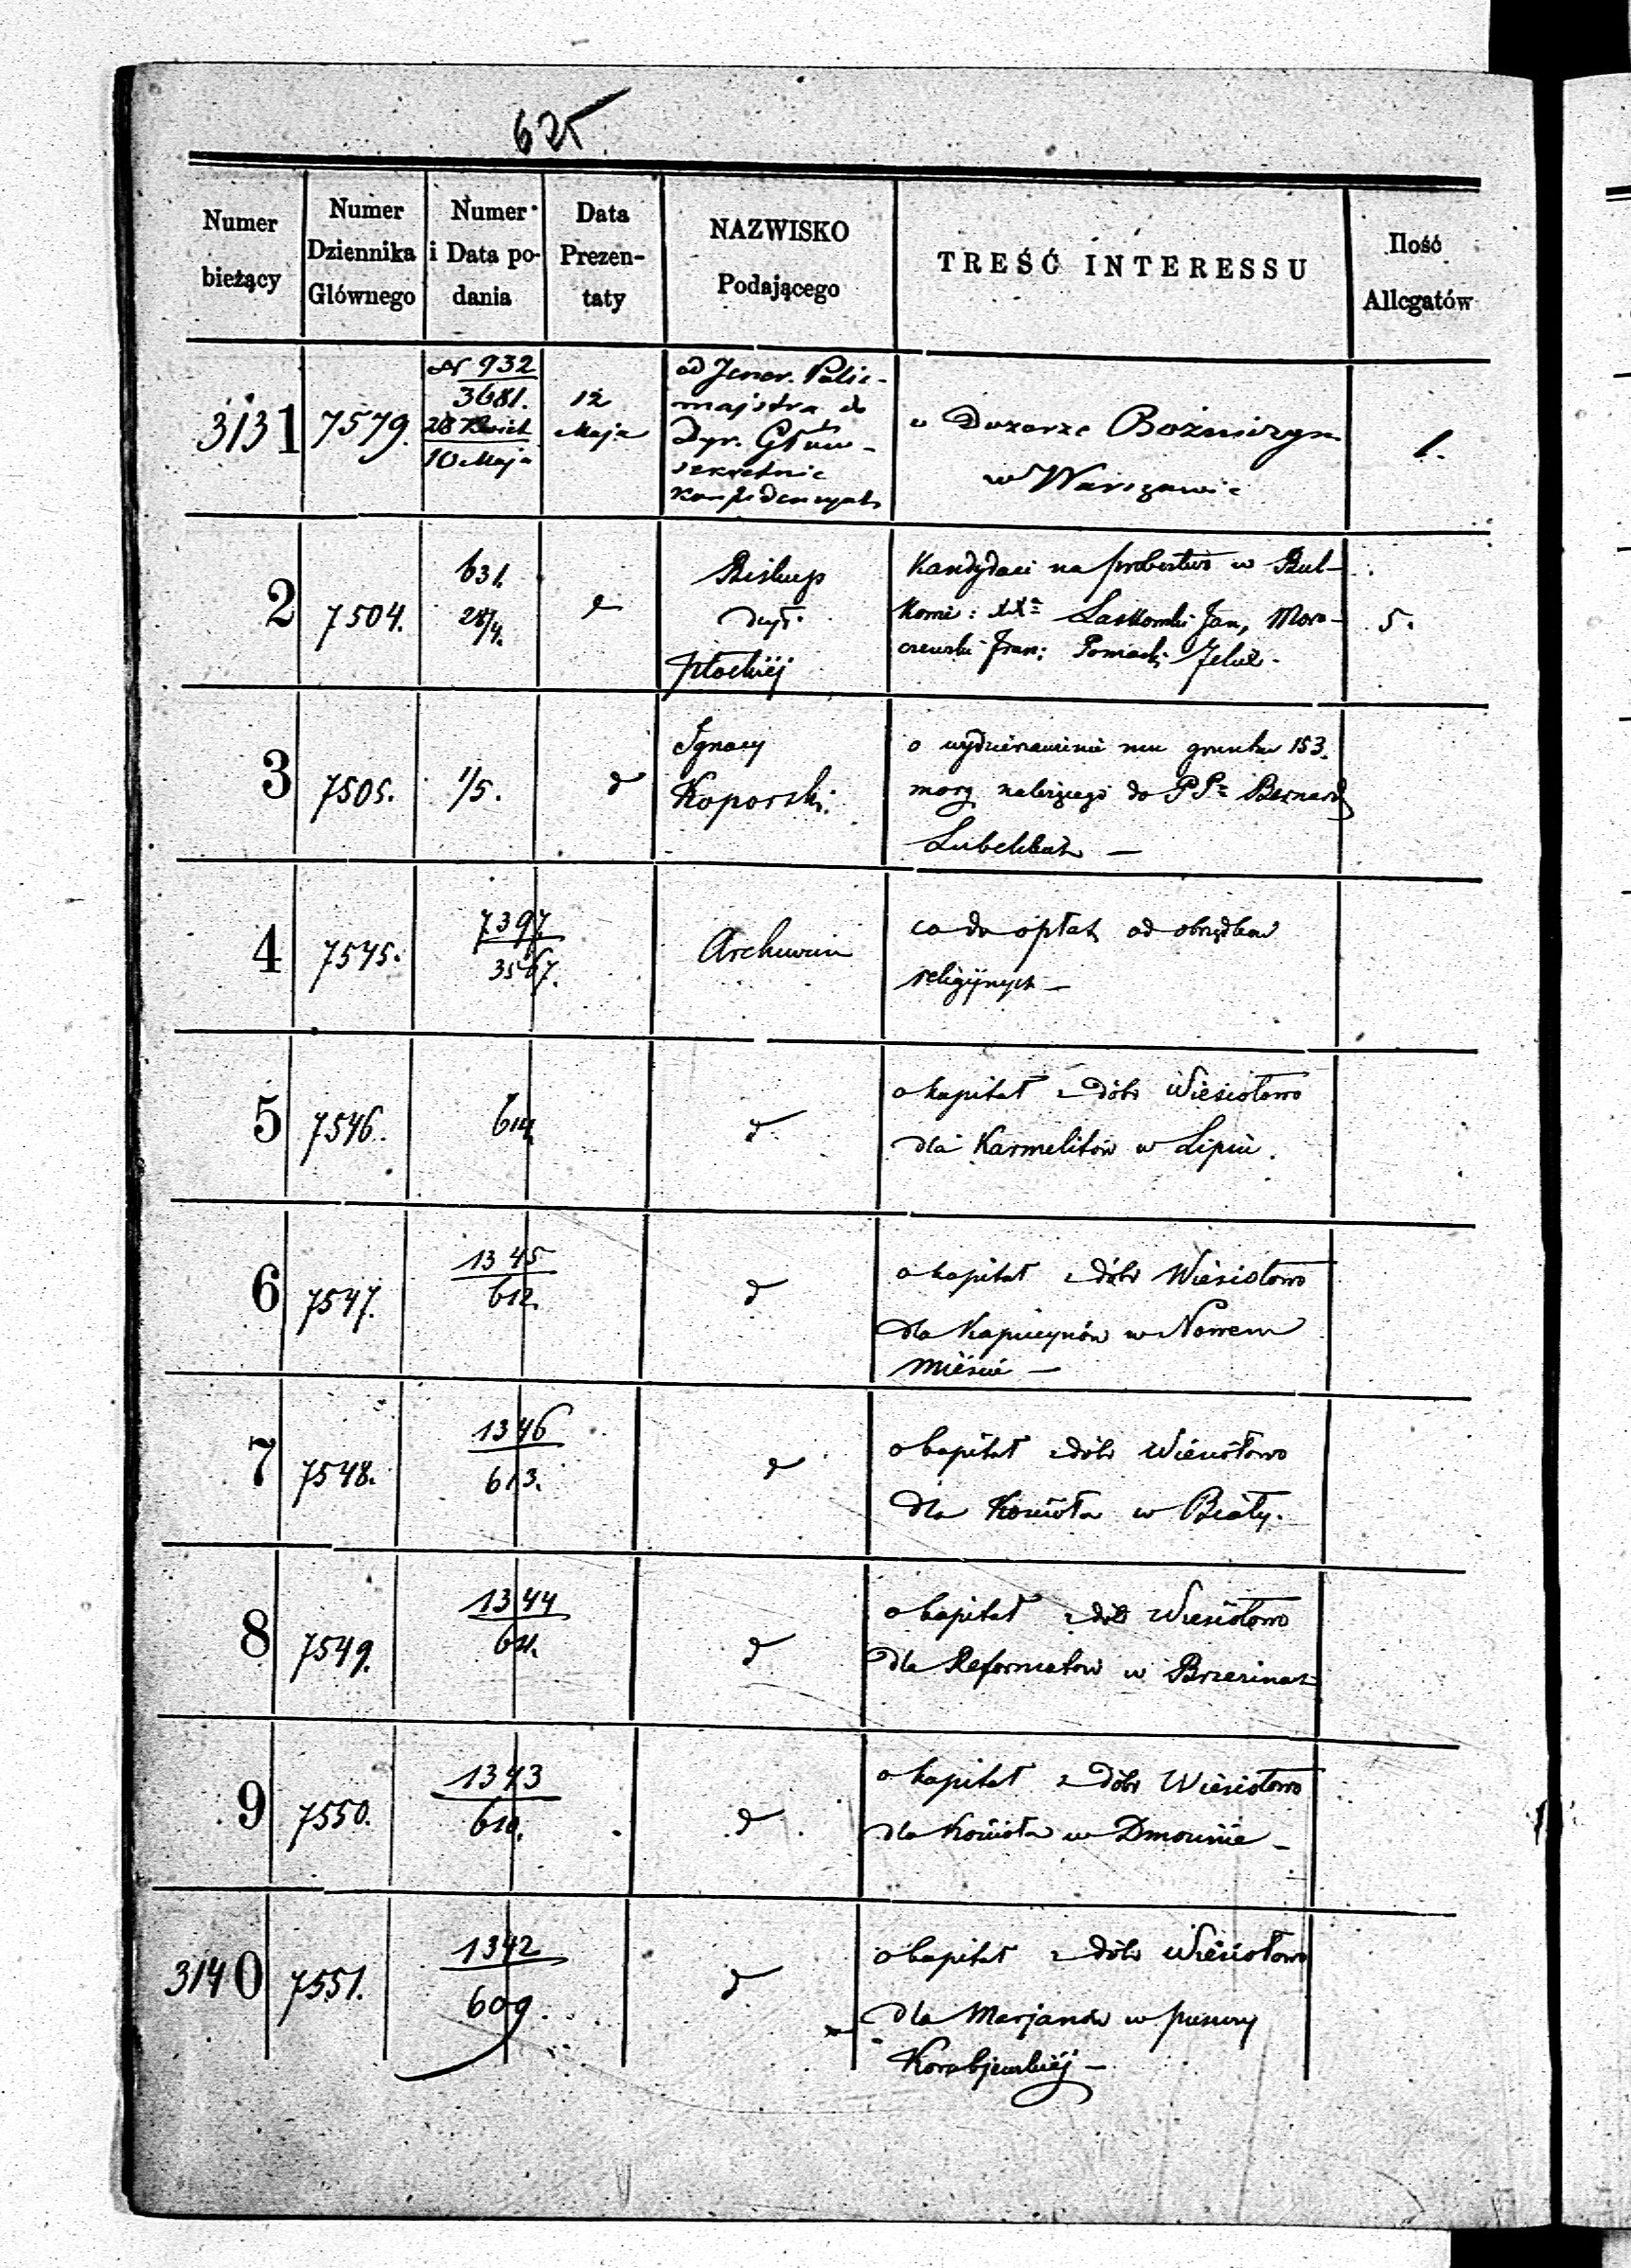 625
Numer bieżący
Numer Dziennika Głównego
Numer i Data podania
Data Prezentaty
NAZWISKO Podającego
TREŚĆ INTERESSU
Ilość Allegatów
3131
7579.
N 932
3681.
28 Kwiet
10 Maja
12
Maja
od Jener. Polic-
majstra do
Dyr. Głów-
sekretnie
o Dozorze Bożniczym
w Warszawie
1.
2
7504.
631.
28/4.
d
Biskup
Dył.
Płockiéj
Kandydaci na probostwo w
XX Laskowski Jan, Moro-
czewski Fran:
5.
3
7505.
1/5.
d
Ignacy
Koporski.
o wydzierżawienie mu gruntu 153.
morg. należącego do PP Bernard
Lubelskich —
4
7545.
7397.
3567.
Archiwum
co do opłat od obrządków
religijnych —
5
7546.
614.
d
o kapitał z dóbr Wiesiołowo
dla Karmelitów w Lipiu.
6
7547.
1345
612.
d
o kapitał z dóbr Wiesiołowo
dla Kapucynów w Nowem
mieście —
7
7548.
1346
613.
d
o kapitał z dóbr Wiesiołowo
dla Kościoła w Biały.
8
7549.
1344
611.
d
o kapitał z dóbr Wiesiołowo
dla Reformatów w Brzezinach
9
7550.
1343
610.
d
o kapitał z dóbr Wiesiołowo
dla Kościoła w Dmosinie —
3140
7551.
1342
609.
d
o kapitał z dóbr Wiesiołowo
dla Marjanów w puszczy
Korabjewskiéj —